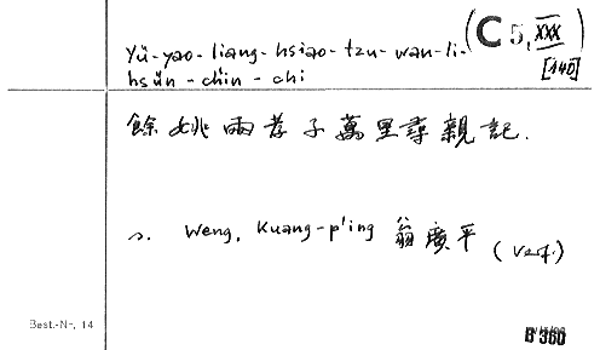 Yü-yao-liang-hsiao-tzu-wan-li-
hsün-chin-chi
(C 5, XXX)
[140]
餘姚両孝子萬里尋親記.
s. Weng, Kuang-p'ing 翁廣平 (Verf.)
Best.-Nr. 14
B 360